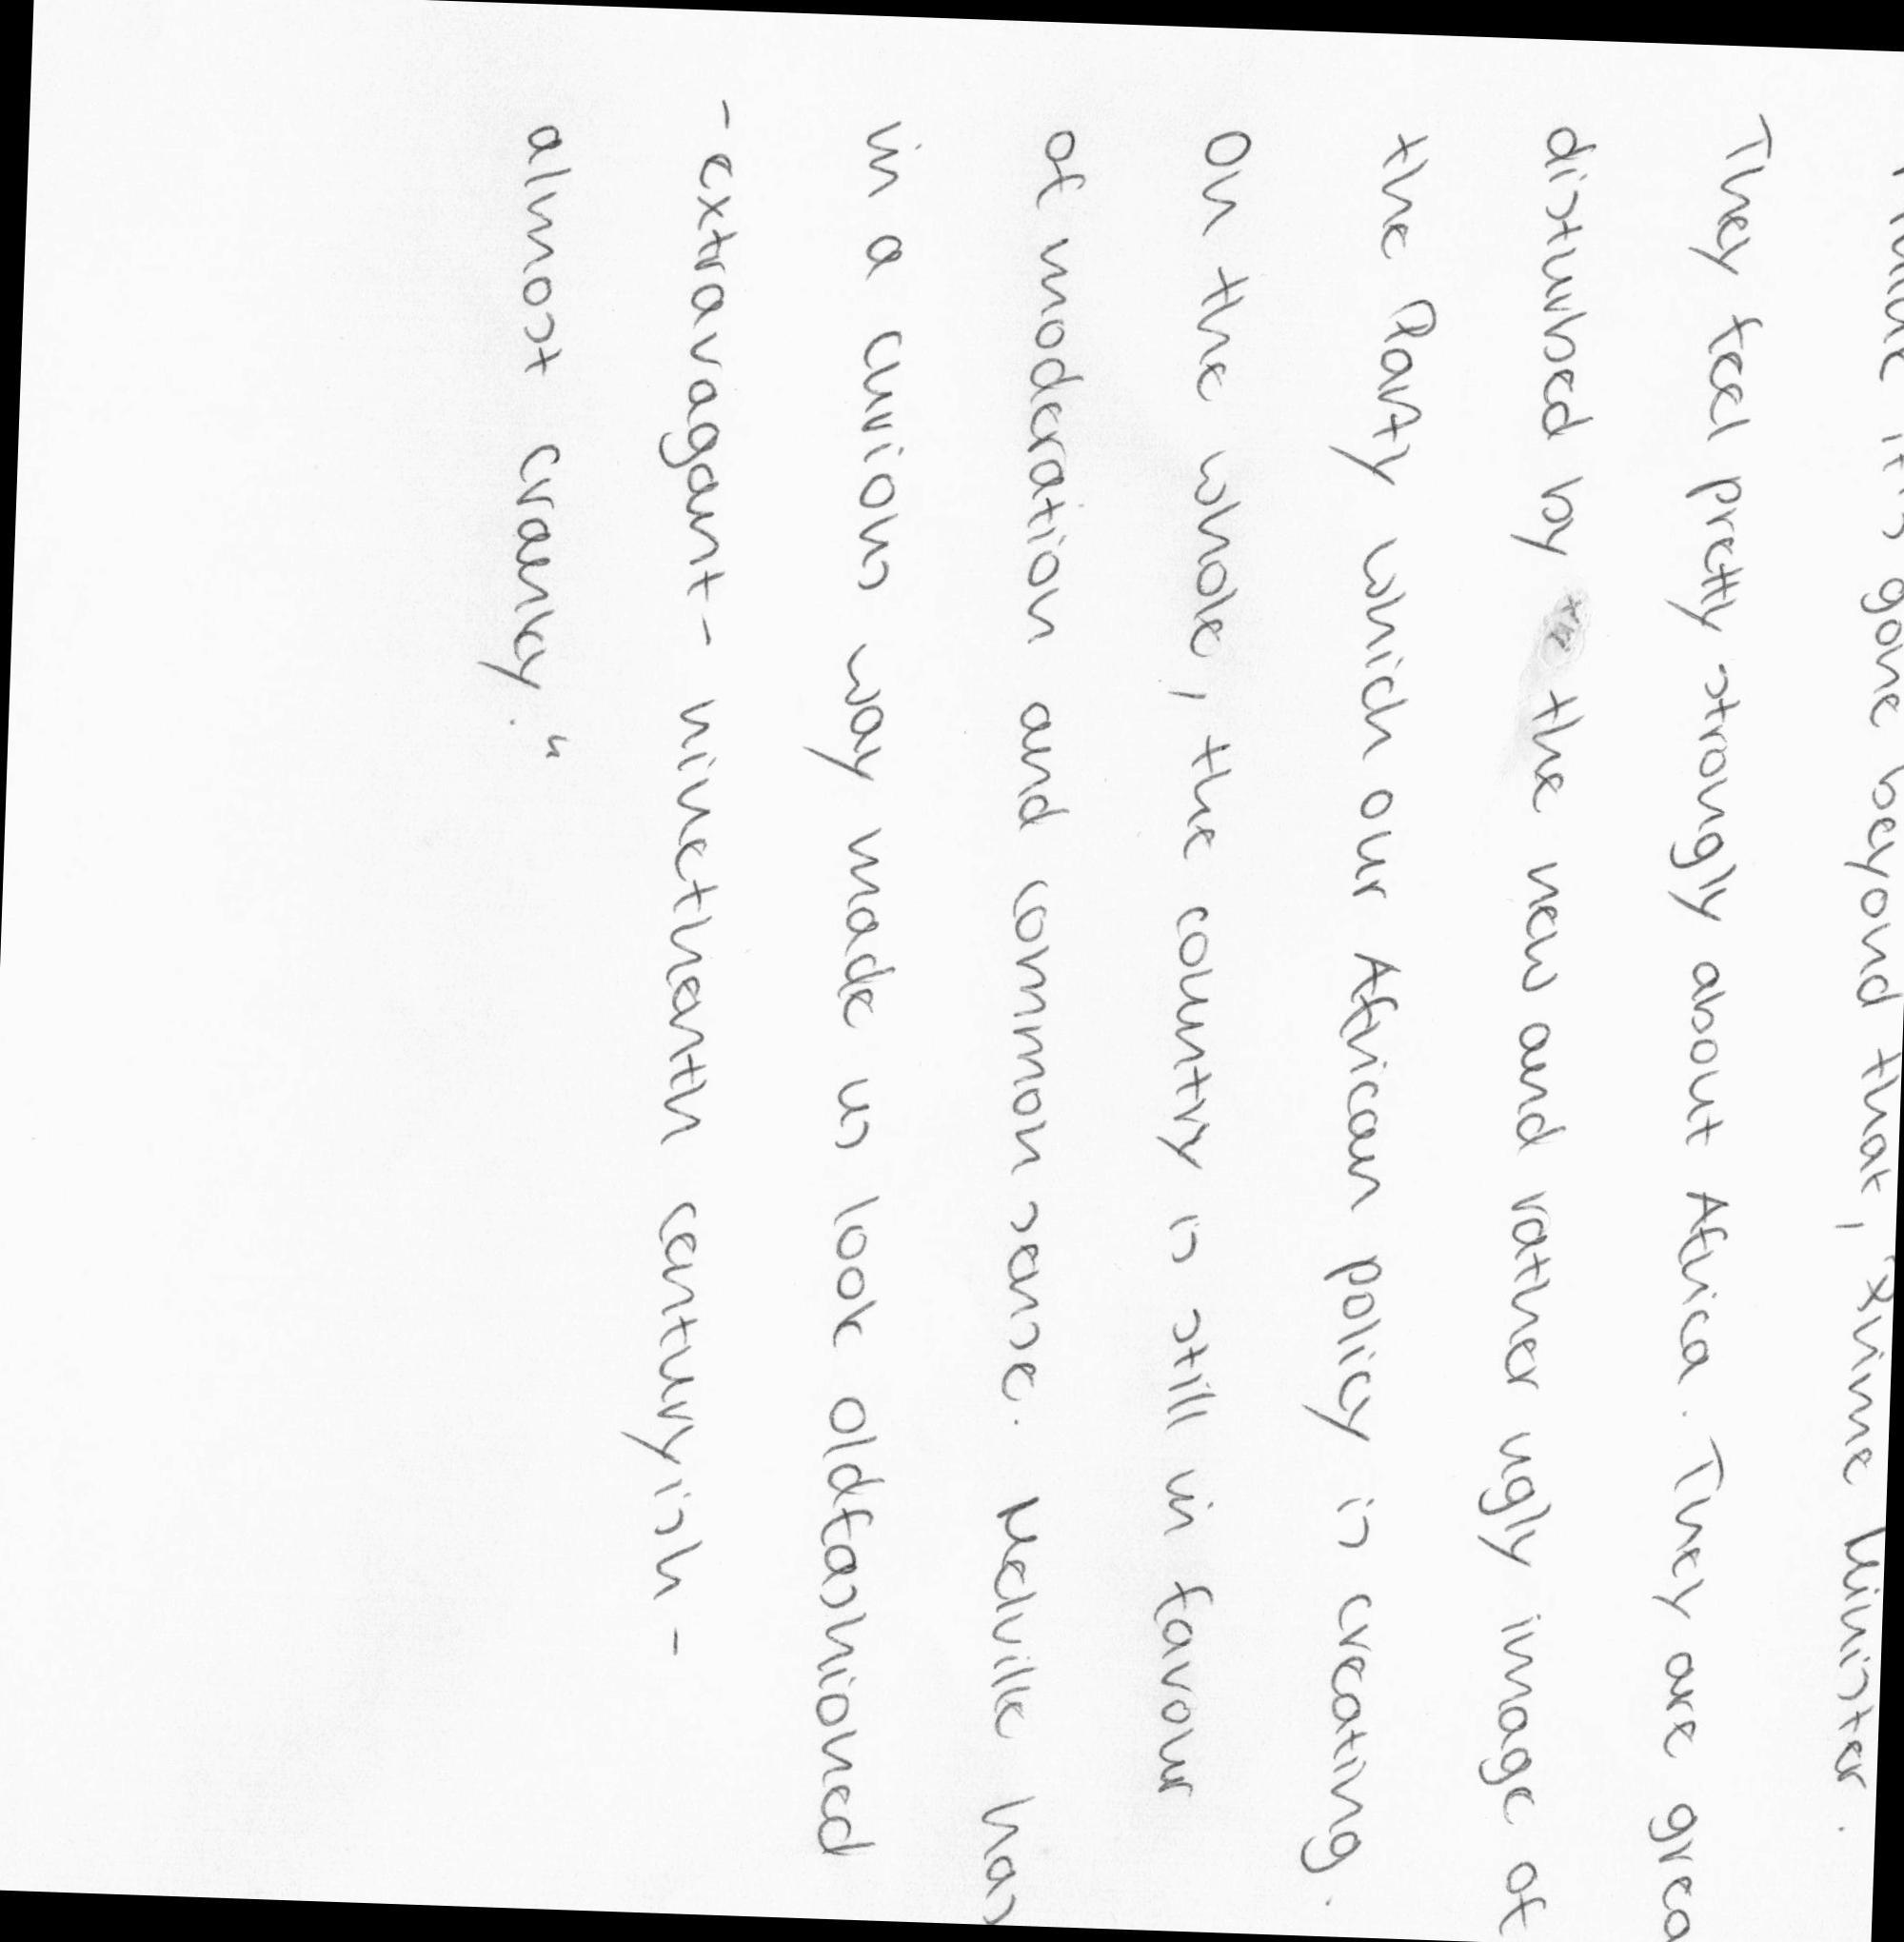 it's gone beyond that, Prime Minister.
They feel pretty strongly about Africa. They are grea
disturbed by the new and rather ugly image of
the Party which our African policy is creating.
On the whole, the country is still in favour
of moderation and common sense. Melville has
in a curious way made us look oldfashioned
-extravagant- ninethenth centuryish -
almost cranky."